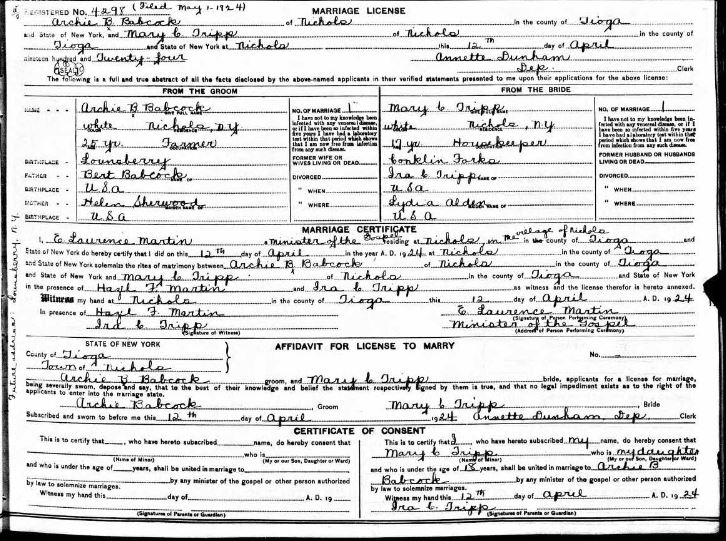 REGISTERED No. 4298 (Filed May 1-1924) MARRIAGE LICENSE
Archie B. Babcock of Nichols in the county of Tioga
and State of New York, and Mary C. Tripp of Nichols in the county of
Tioga and State of New York at Nichols this 12th day of April
nineteen hundred and Twenty-four Annette Dunham
SEAL Dep. Clerk
The following is a full and true abstract of all the facts disclosed by the above-named applicants in their verified statements presented to me upon their applications for the above license:
FROM THE GROOM FROM THE BRIDE
NAME Archie B. Babcock NO. OF MARRIAGE 1 Mary C. Tripp NO. OF MARRIAGE 1
White Nichols, N.Y. I have not to my knowledge been infected with any venereal disease, or if I have been so infected within five years I have had a laboratory test within that period which shows that I am now free from infection from any such disease. White Nichols, N.Y. I have not to my knowledge been infected with any venereal disease, or if I have been so infected within five years I have had a laboratory test within that period which shows that I am now free from infection from any such disease.
25 yr. Farmer 17 yr. Housekeeper
BIRTHPLACE Lounsberry FORMER WIFE OR WIVES LIVING OR DEAD Conklin Forks FORMER HUSBAND OR HUSBANDS LIVING OR DEAD
FATHER Bert Babcock DIVORCED Ira C. Tripp DIVORCED
BIRTHPLACE U.S.A " WHEN U.S.A " WHEN
MOTHER Helen Sherwood " WHERE Lydia Alden " WHERE
BIRTHPLACE U.S.A U.S.A
MARRIAGE CERTIFICATE
I, E Laurence Martin a minister of the Gospel residing at Nichols, in the village of Nichols in the county of Tioga and
State of New York do hereby certify that I did on this 12th day of April in the year A. D. 1924 at Nichols in the county of Tioga
and State of New York solemnize the rites of matrimony between Archie B Babcock of Nichols in the county of Tioga
and State of New York and Mary C. Tripp of Nichols in the county of Tioga and State of New York
in the presence of Hazl F. Martin and Ira C. Tripp as witness and the license therefor is hereto annexed.
Witness my hand at Nichols in the county of Tioga this 12 day of April A. D. 1924
In presence of Hazl F. Martin E. Laurence Martin
(Signature of Person Performing Ceremony)
Ira C. Tripp Minister of the Gospel
(Signature of Witness) (Address of Person Performing Ceremony)
STATE OF NEW YORK AFFIDAVIT FOR LICENSE TO MARRY
County of Tioga No.
Town of Nichols
Archie B. Babcock groom, and Mary C. Tripp bride, applicants for a license for marriage,
being severally sworn, depose and say, that to the best of their knowledge and belief the statement respectively signed by them is true, and that no legal impediment exists as to the right of the
applicants to enter into the marriage state.
Archie Babcock Groom Mary C. Tripp Bride
Subscribed and sworn to before me this 12th day of April 1924 Annette Dunham Dep. Clerk
CERTIFICATE OF CONSENT
This is to certify that , who have hereto subscribed name, do hereby consent that
who is
(Name of Minor) (My or our Son, Daughter or Ward)
and who is under the age of years, shall be united in marriage to
by any minister of the gospel or other person authorized
by law to solemnize marriages.
Witness my hand this day of A. D. 19
(Signatures of Parents or Guardian)
This is to certify that I , who have hereto subscribed my name, do hereby consent that
Mary C. Tripp who is my daughter
(Name of Minor) (My or our Son, Daughter or Ward)
and who is under the age of 18 years, shall be united in marriage to Archie B
Babcock by any minister of the gospel or other person authorized
by law to solemnize marriages.
Witness my hand this 12th day of April A. D. 1924
Ira C. Tripp
(Signatures of Parents or Guardian)
Future address Lounsberry N.Y.